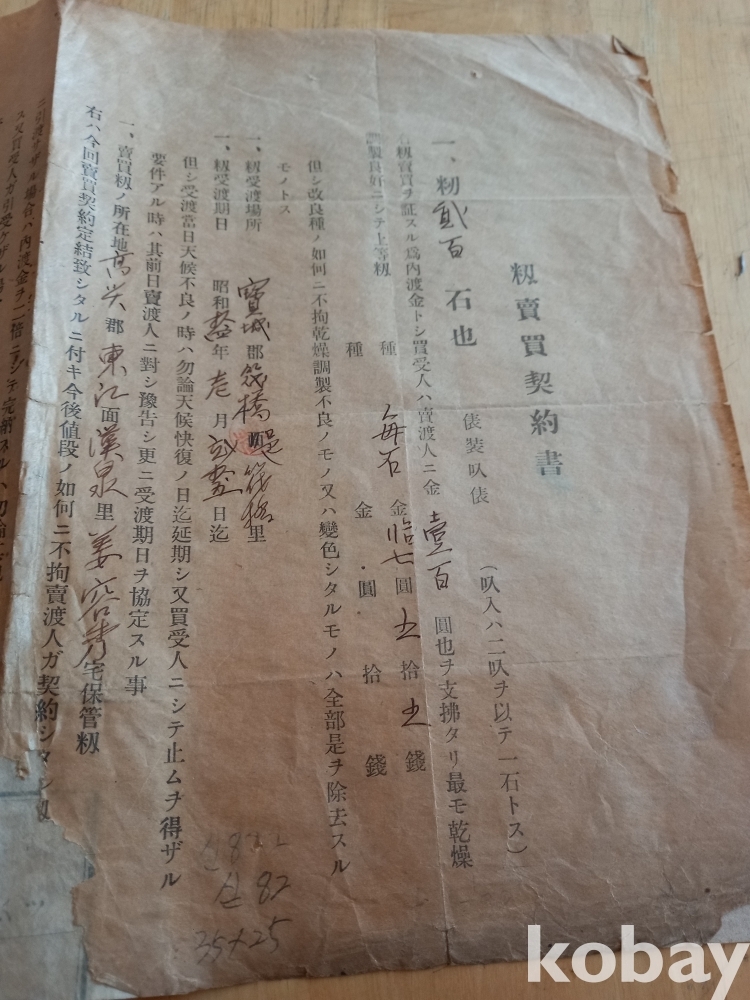 籾賣買契約書
一、籾貳百石也 俵装叺俵 (叺入ハ二叺ヲ以テ一石トス)
右籾賣買ヲ証スル爲内渡金トシ買受人ハ賣渡人ニ金壹百圓也ヲ支拂タリ最モ乾燥
調製良好ニシテ上等籾
種 每石金拾七圓五拾五錢
種 金 圓 拾 錢
但シ改良種ノ如何ニ不拘乾燥調製不良ノモノ又ハ變色シタルモノハ全部是ヲ除去スル
モノトス
一、籾受渡場所 寶城郡筏橋 筏橋里
一、籾受渡期日 昭和 年 月 日迄
但シ受渡當日天候不良ノ時ハ勿論天候快復ノ日迄延期シ又買受人ニシテ止ムヲ得ザル
要件アル時ハ其前日賣渡人ニ對シ豫告シ更ニ受渡期日ヲ協定スル事
一、賣買籾ノ所在地高興郡東江面漢泉里姜 秀宅保管籾
右ハ今回賣買契約定結致シタルニ付キ今後値段ノ如何ニ不拘賣渡人ガ契約シタ
ニ引渡サザル場合ハ内渡金ヲ二倍ニシテ完納スルハ勿論
ス又買受人ガ引受ケザル場
82
25+25
kobay